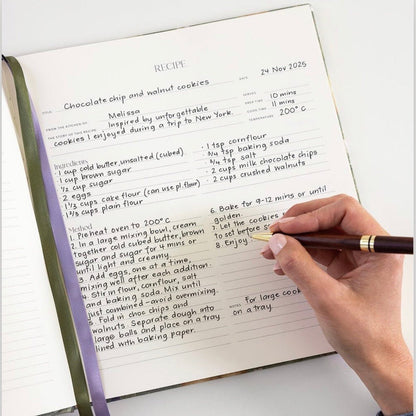 RECIPE
TITLE Chocolate chip and walnut cookies DATE 24 Nov 2025
FROM THE KITCHEN OF: Melissa SERVES
THE STORY OF THIS RECIPE: Inspired by unforgettable PREP TIME 10 mins
cookies I enjoyed during a trip to New York. COOK TIME 11 mins
TEMPERATURE 200°C
Ingredients
1 cup cold butter, unsalted (cubed)
1 cup brown sugar
1/2 cup sugar
2 eggs
1 1/3 cups cake flour (can use pl. flour)
1 1/3 cups plain flour
· 1 tsp cornflour
· 3/4 tsp baking soda
· 3/4 tsp salt
· 2 cups milk chocolate chips
· 2 cups crushed walnuts
Method
1. Preheat oven to 200°C
2. In a large mixing bowl, cream
together cold cubed butter, brown
sugar and sugar for 4 mins or
until light and creamy.
3. Add eggs, one at a time,
mixing well after each addition.
4. Stir in flour, cornflour, salt
and baking soda. Mix until
just combined - avoid overmixing.
5. Fold in choc chips and
walnuts. Separate dough into
large balls and place on a tray
lined with baking paper.
6. Bake for 9-12 mins or until
golden.
7. Let the cookies
to set before
8. Enjoy
NOTES: For large
on a tray.